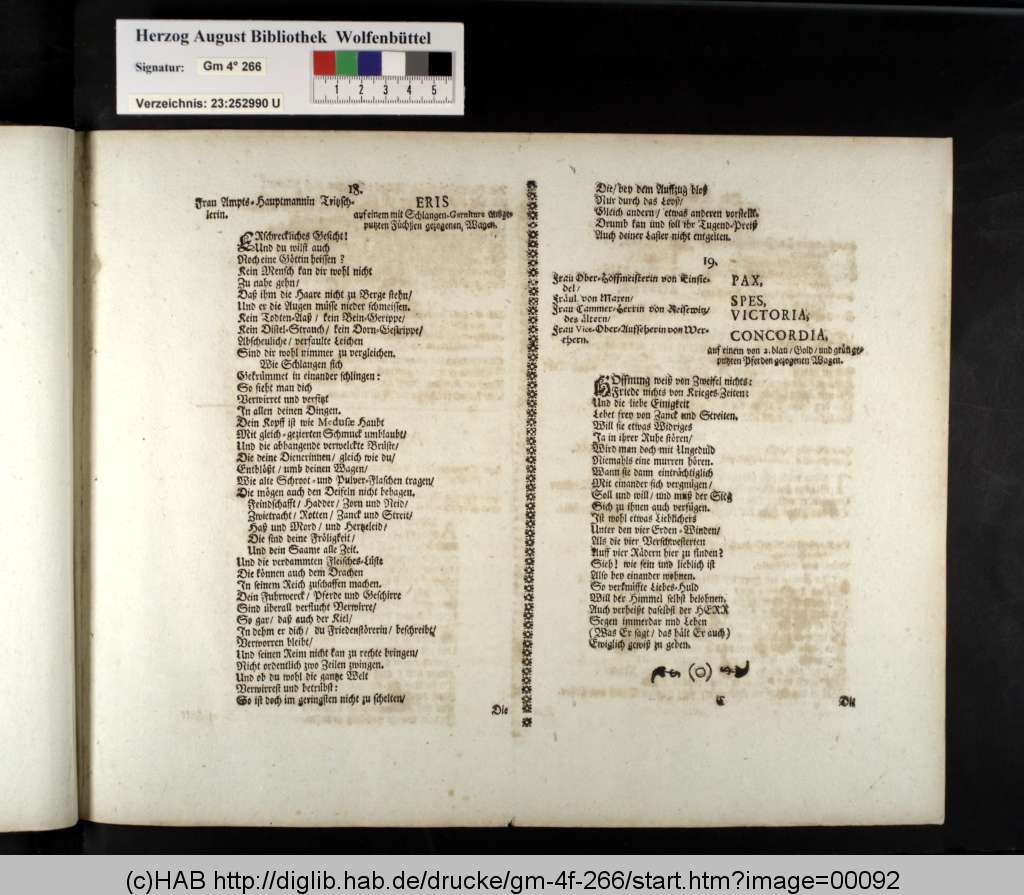 Herzog August Bibliothek Wolfenbüttel
Signatur: Gm 4° 266
Verzeichnis: 23:252990 U
1 2 3 4 5
18.
Frau Ampts-Hauptmannin Tritzsch-
lerin.
ERIS
auf einem mit Schlangen-Garniture außge-
putzten Füchsen gezogenen Wagen.
ERschreckliches Gesicht!
Und du wilst auch
Noch eine Göttin heissen?
Kein Mensch kan dir wohl nicht
Zu nahe gehn/
Daß ihm die Haare nicht zu Berge stehn/
Und er die Augen müsse nieder schmeissen.
Kein Todten-Aaß/ kein Bein-Gerippe/
Kein Distel-Strauch/ kein Dorn-Gestrippe/
Abscheuliche/ verfaulte Leichen
Sind dir wohl nimmer zu vergleichen.
Wie Schlangen sich
Gekrümmet in einander schlingen:
So sieht man dich
Verwirret und verfitzt
In allen deinen Dingen.
Dein Kopff ist wie Medusæ Haubt
Mit gleich-gezierten Schmuck umblaubt/
Und die abhangende verwelckte Brüste/
Die deine Dienerinnen/ gleich wie du/
Entblößt/ umb deinen Wagen/
Wie alte Schroot- und Pulver-Flaschen tragen/
Die mögen auch den Teifeln nicht behagen.
Feindschafft/ Hadder/ Zorn und Neid/
Zwietracht/ Rotten/ Zanck und Streit/
Haß und Mord/ und Hertzeleid/
Die sind deine Fröligkeit/
Und dein Saame alle Zeit.
Und die verdammten Fleisches-Lüste
Die können auch dem Drachen
In seinem Reich zuschaffen machen.
Dein Fuhrwerck/ Pferde und Geschirre
Sind überall verflucht Verwirre/
So gar/ daß auch der Kiel/
In dehm er dich/ du Friedenstörerin/ beschreibt/
Verworren bleibt/
Und seinen Reim nicht kan zu rechte bringen/
Nicht ordentlich zwo Zeilen zwingen.
Und ob du wohl die gantze Welt
Verwirrest und betrübst:
So ist doch im geringsten nicht zu schelten/
Die
Die/ bey dem Auffzug bloß
Nur durch das Looß/
Gleich andern/ etwas anderen vorstellt.
Drumb kan und soll ihr Tugend-Preiß
Auch deiner Laster nicht entgelten.
19.
Frau Ober-Hoffmeisterin von Einsie-
del/
Fräul. von Maxen/
Frau Cammer-Herrin von Reisewitz/
des ältern/
Frau Vice-Ober-Auffseherin von Wer-
thern.
PAX,
SPES,
VICTORIA,
CONCORDIA,
auf einem von 2. blau/ Gold/ und grün ge-
putzten Pferden gezogenen Wagen.
HOffnung weiß von Zweifel nichts:
Friede nichts von Krieges-Zeiten:
Und die liebe Einigkeit
Lebet frey von Zanck und Streiten.
Will sie etwas Widriges
Ja in ihrer Ruhe stören/
Wird man doch mit Ungeduld
Niemahls eine murren hören.
Wann sie dann einträchtiglich
Mit einander sich vergnügen/
Soll und will/ und muß der Sieg
Sich zu ihnen auch verfügen.
Ist wohl etwas Lieblichers
Unter den vier Erden-Winden/
Als die vier Verschwesterten
Auff vier Rädern hier zu finden?
Sieh! wie fein und lieblich ist
Also bey einander wohnen.
So verknüffte Liebes-Huld
Will der Himmel selbst belohnen.
Auch verheißt daselbst der HERR
Segen immerdar und Leben
(Was Er sagt/ das hält Er auch)
Ewiglich gewiß zu geben.
C
Die
(c)HAB http://diglib.hab.de/drucke/gm-4f-266/start.htm?image=00092